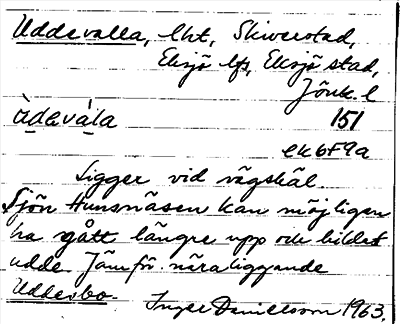 Uddevalla, lht, Skiverstad,
Eksjö lfs, Eksjö stad,
Jönk. l
àdevála 151
ek 6F9a
Ligger vid vägskäl.
Sjön Hunsnäsen kan möjligen
ha gått längre upp och bildat
udde. Jämför näraliggande
Uddesbo.
Inger Danielsson 1963.